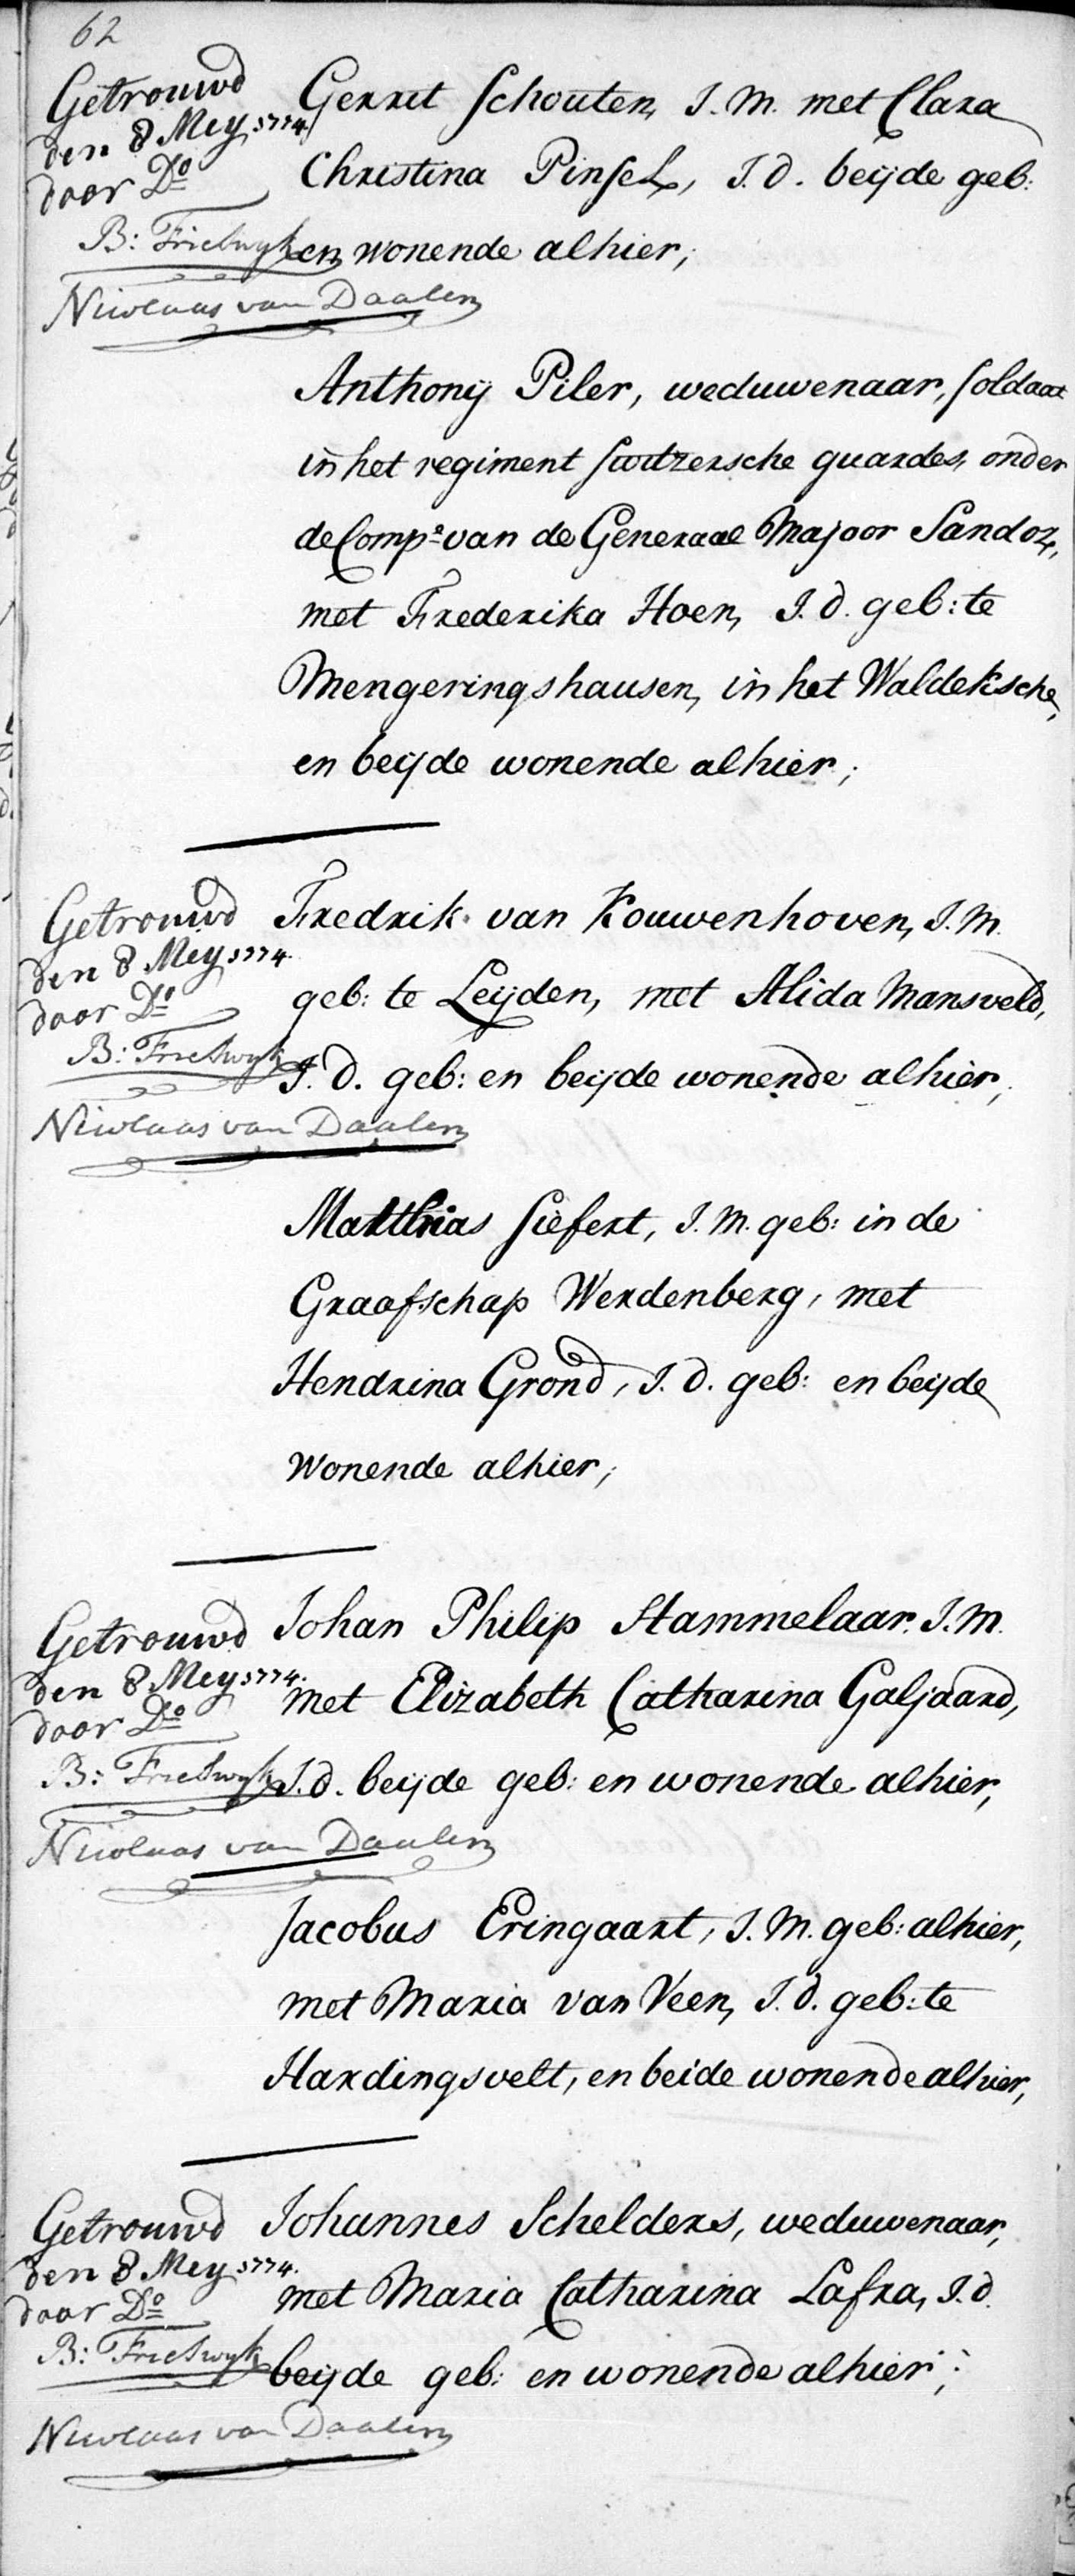 62
Getrouwd
den 8 Mey 1774.
door Do
B: Frieswyk
Nicolaas van Daalen
Gerrit Schouten, J. M. met Clara
Christina Pinsel, J. d. beijde geb:
en wonende alhier;
Anthonij Piler, weduwenaar, soldaat
in het regiment switzersche guardes, onder
de Compe van de Generaal Majoor Sandoz,
met Frederika Hoen, J. d. geb: te
Mengeringshausen, in het Waldeksche,
en beijde wonende alhier;
Getrouwd
den 8 Mey 1774.
door Do
B: Frieswyk
Nicolaas van Daalen
Fredrik van Kouwenhoven, J. M.
geb: te Leijden, met Alida Mansveld,
J. d. geb: en beijde wonende alhier;
Matthias Siefert, J. M. geb: in de
Graafschap Werdenberg, met
Hendrina Grond, J. d. geb: en beijde
wonende alhier;
Getrouwd
den 8 Mey 1774.
door Do
B: Frieswyk
Nicolaas van Daalen
Johan Philip Stammelaar, J. M.
met Elizabeth Catharina Galjaard,
J. d. beijde geb: en wonende alhier,
Jacobus Eringaart, J. M. geb: alhier,
met Maria van Veen, J. d. geb: te
Hardingsvelt, en beide wonende alhier,
Getrouwd
den 8 Mey 1774.
door Do
B: Frieswyk
Nicolaas van Daalen
Johannes Schelders, weduwenaar,
met Maria Catharina Lafra, J. d.
beijde geb: en wonende alhier;